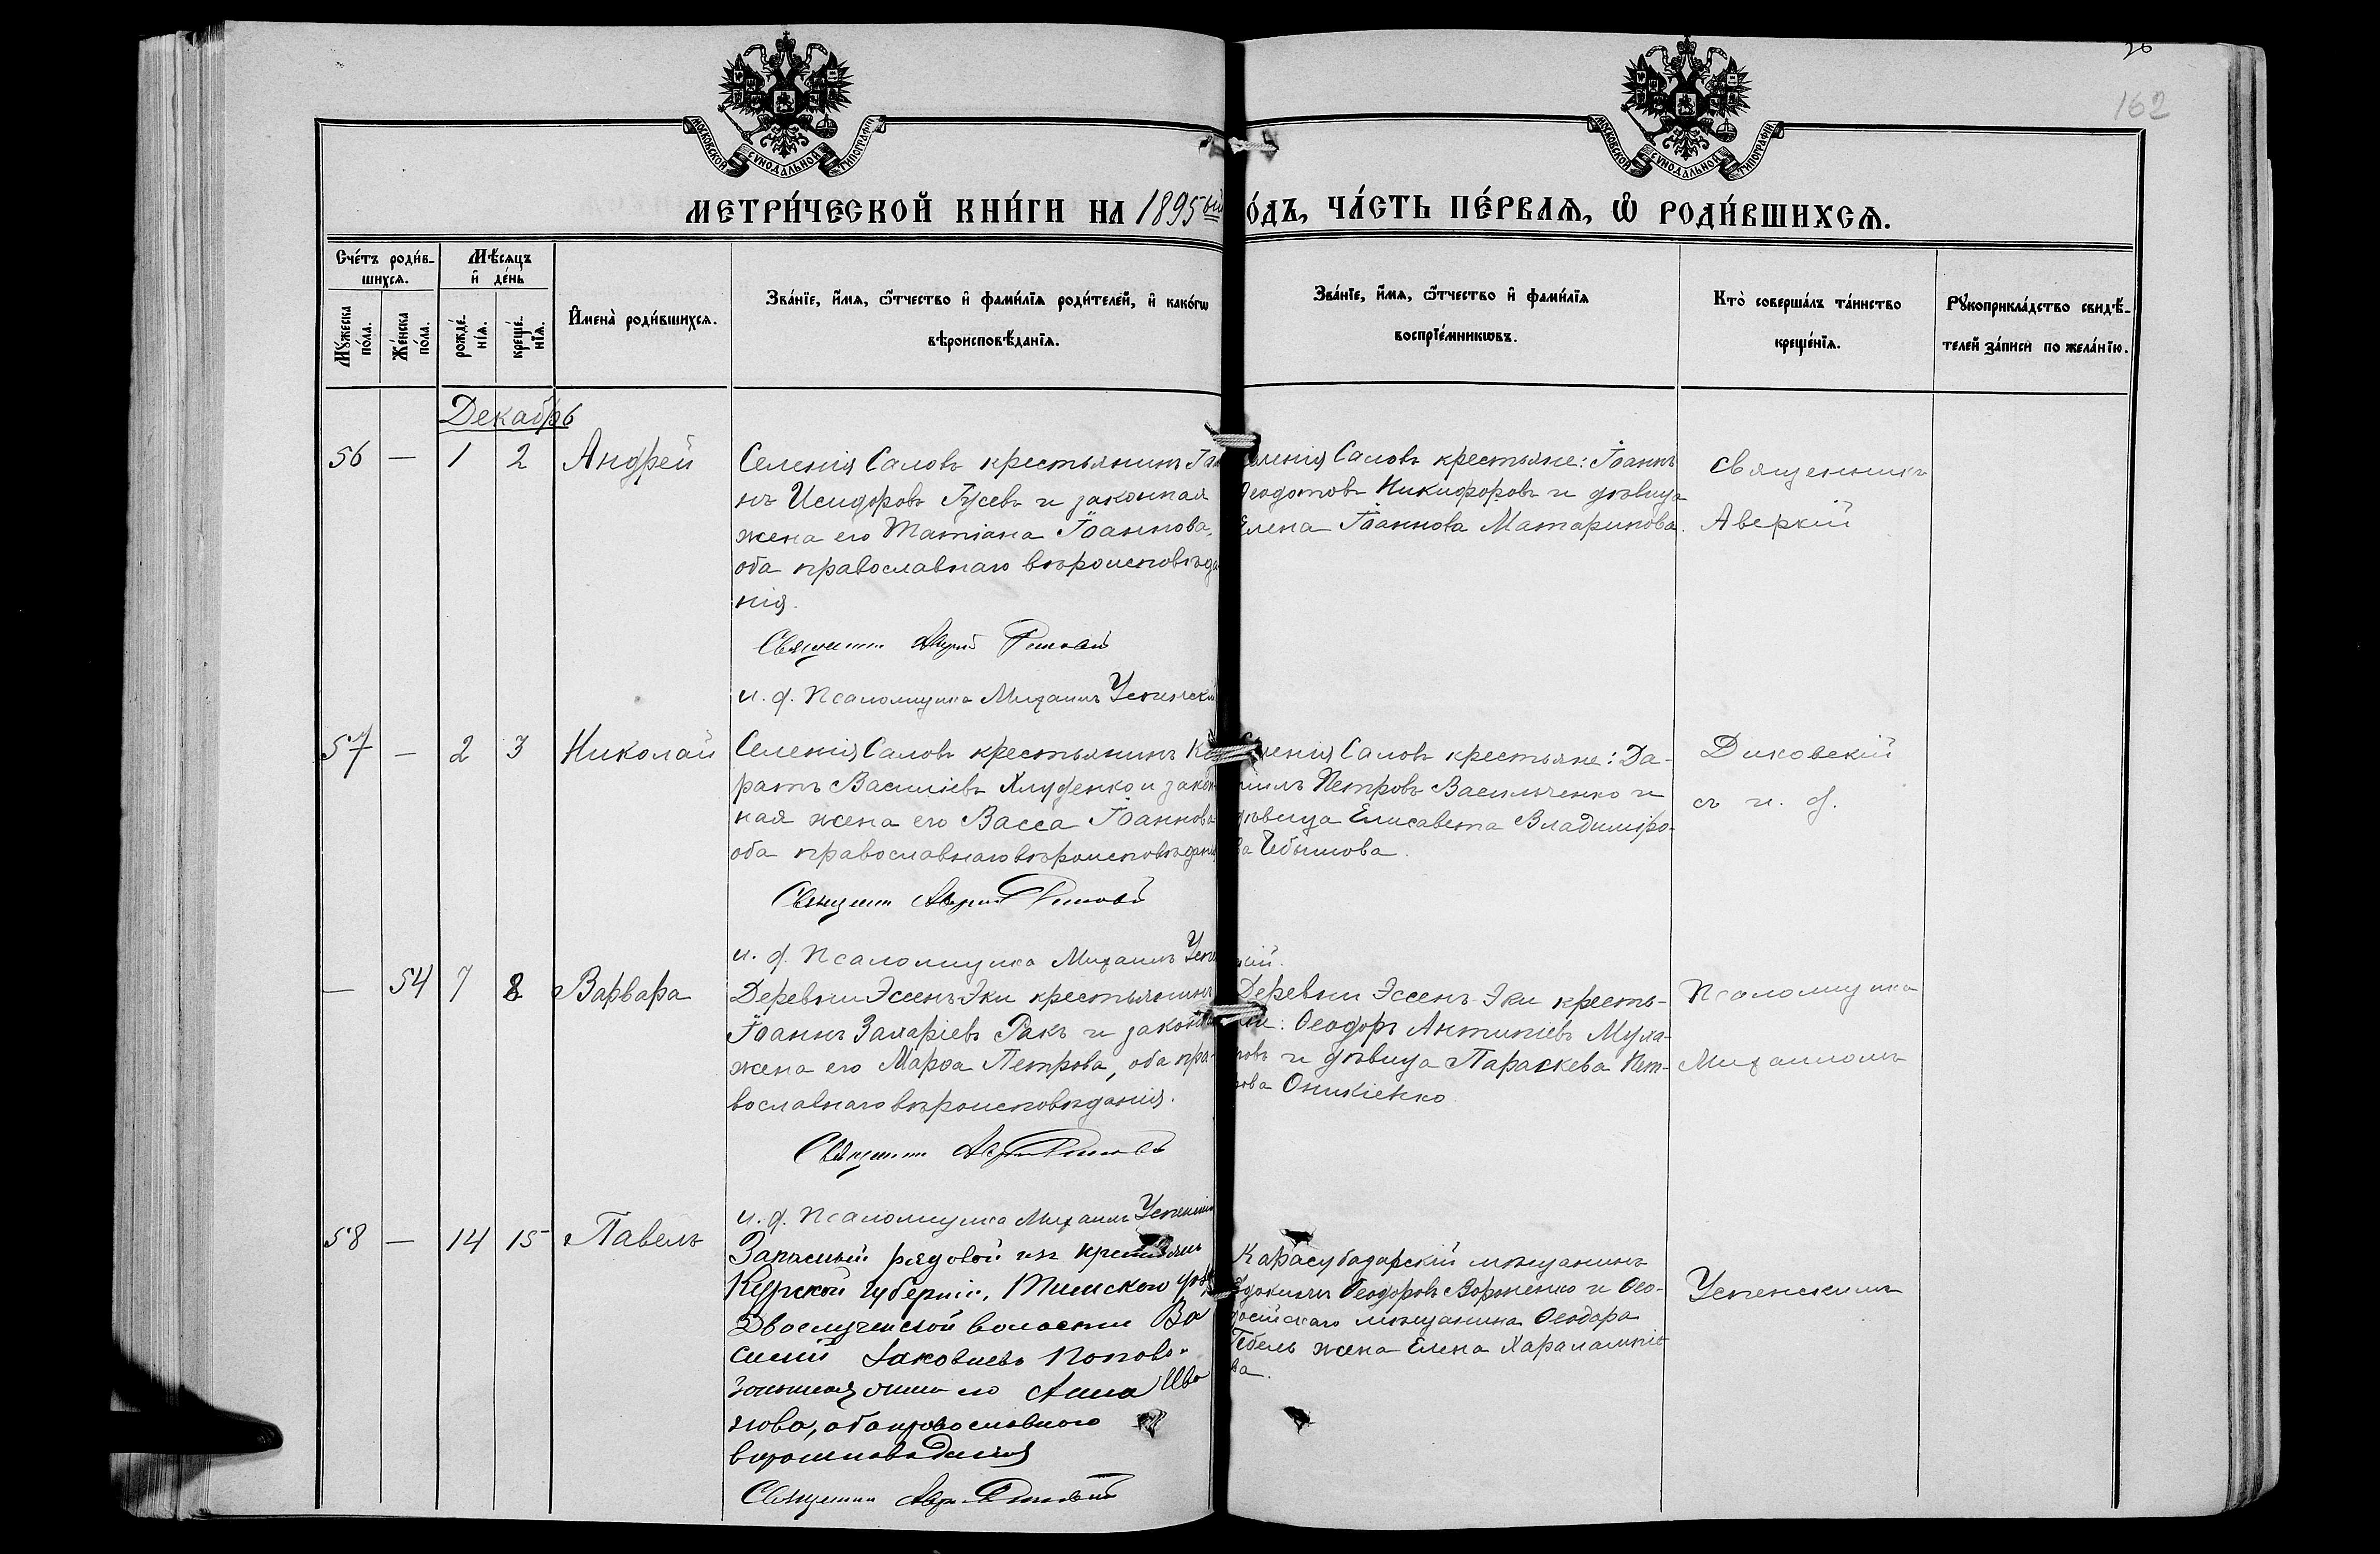 26
162
МОСКОВСКОЙ СУНОДАЛЬНОЙ ТИПОГРАФІИ
МОСКОВСКОЙ СУНОДАЛЬНОЙ ТИПОГРАФІИ
МЕТРИ́ЧЕСКОЙ КНИ́ГИ НА 1895ый
О́ДЪ, ЧА́СТЬ ПЕ́РВАѦ, Ѡ҆ РОДИ́ВШИХСѦ.
Сче́тъ роди́в-
шихсѧ.
Мѣ́сѧцъ
и҆ де́нь
Мꙋ́жеска
по́ла.
Же́нска
по́ла.
рожде́-
нїѧ.
креще́-
нїѧ.
И҆мена̀ роди́вшихсѧ.
Зва́нїе, и҆́мѧ, ѻ҆́тчество и҆ фами́лїѧ роди́телей, и҆ како́гѡ
вѣроисповѣ́данїѧ.
Зва́нїе, и҆́мѧ, ѻ҆́тчество и҆ фами́лїѧ
воспрїе́мникѡвъ.
Кто̀ соверша́лъ та́инство
креще́нїѧ.
Рꙋкоприкла́дство свидѣ́-
телей за́писи по жела́нїю.
Декабрь
56 — 1 2 Андрей
Селенія Саловъ крестьянинъ Іоан
нъ Исидоровъ Гусевъ и законная
жена его Татіана Іоаннова,
оба православнаго вѣроисповѣда
нія.
Священникъ Аверкій
и. д. Псаломщика Михаилъ Успенскій
еленія Саловъ крестьяне: Іоаннъ
Ѳеодотовъ Никифоровъ и дѣвица
Елена Іоаннова Матарикова.
Священникъ
Аверкій
57 — 2 3 Николай
Селенія Саловъ крестьянинъ Ко
ратъ Василіевъ Хлуденко и закон
ная жена его Васса Іоаннова
оба православнаго вѣроисповѣдані
Священникъ Аверкій
и. д. Псаломщика Михаилъ Успен
еленія Саловъ крестьяне: Да-
ніилъ Петровъ Васильченко и
дѣвица Елисавета Владиміро-
ва Чебышова.
скій.
Диковскій
съ и. д.
— 54 7 8 Варвара
Деревни Эссенъ-Эки крестьянинъ
Іоаннъ Захаріевъ Ракъ и законная
жена его Марѳа Петрова, оба пра-
вославнаго вѣроисповѣданія.
Священникъ
и. д. Псаломщика Михаилъ Успенскій
Деревни Эссенъ-Эки кресть-
яне: Ѳеодоръ Антипіевъ Муха-
ровъ и дѣвица Параскева Пет-
рова Оникіенко
Псаломщика
Михаиломъ
58 — 14 15 Павелъ
Запасный рядовой изъ крестьянъ
Курской губерніи, Тимскаго уѣз
Двоелученской волости Ва
силій Іаковлевъ Поповъ
законная жена его Анна Ива
нова, оба православнаго
вѣроисповѣданія
Священникъ
Карасубазарскій мѣщанинъ
Евдокимъ Ѳеодоровъ Вороненко и Ѳео-
досійскаго мѣщанина Ѳеодора
Гебель жена Елена Харалампіе
ва.
Успенскимъ